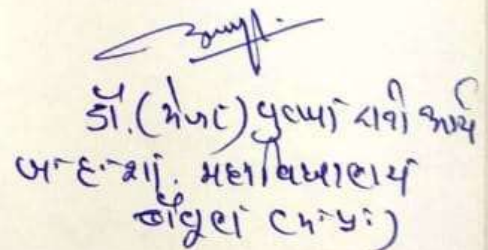 डॉ. (मेजर) रानी आर्य
ज.ह.शा. महाविद्यालय
बैतूल (म.प्र.)